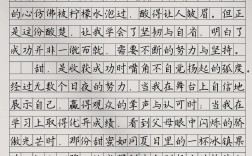 的心仿佛被柠檬水泡过，酸得让人皱眉。但正
是这份酸楚，让我学会了坚韧与自省，明白了
成功并非一蹴而就，需要不断的努力与坚持。
甜，是收获成功时嘴角不自觉扬起的弧度。
经过无数个日夜的努力，当我在舞台上自信地
展示自己，赢得观众的掌声与认可时；当我在
学习上取得优异成绩，看到父母眼中闪烁的骄
傲光芒时，那份甜蜜如同夏日里的一杯冰镇果